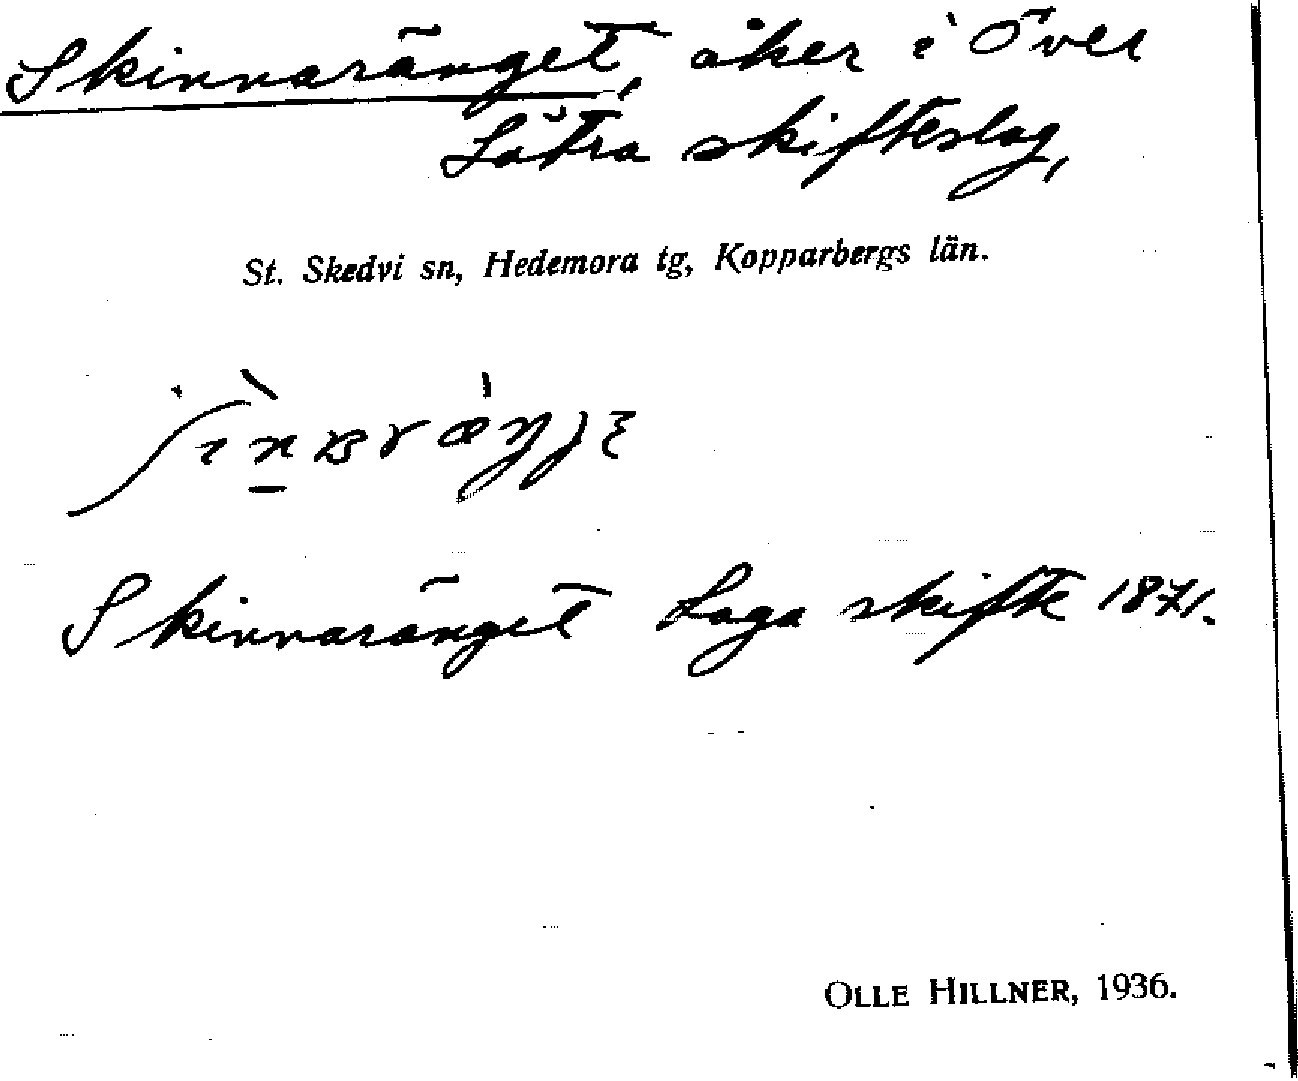 Skinnaränget, åker i Över
Sätra skifteslag,
St. Skedvi sn, Hedemora tg, Kopparbergs län.
Skinnaränget Laga skifte 1871.
OLLE HILLNER, 1936.